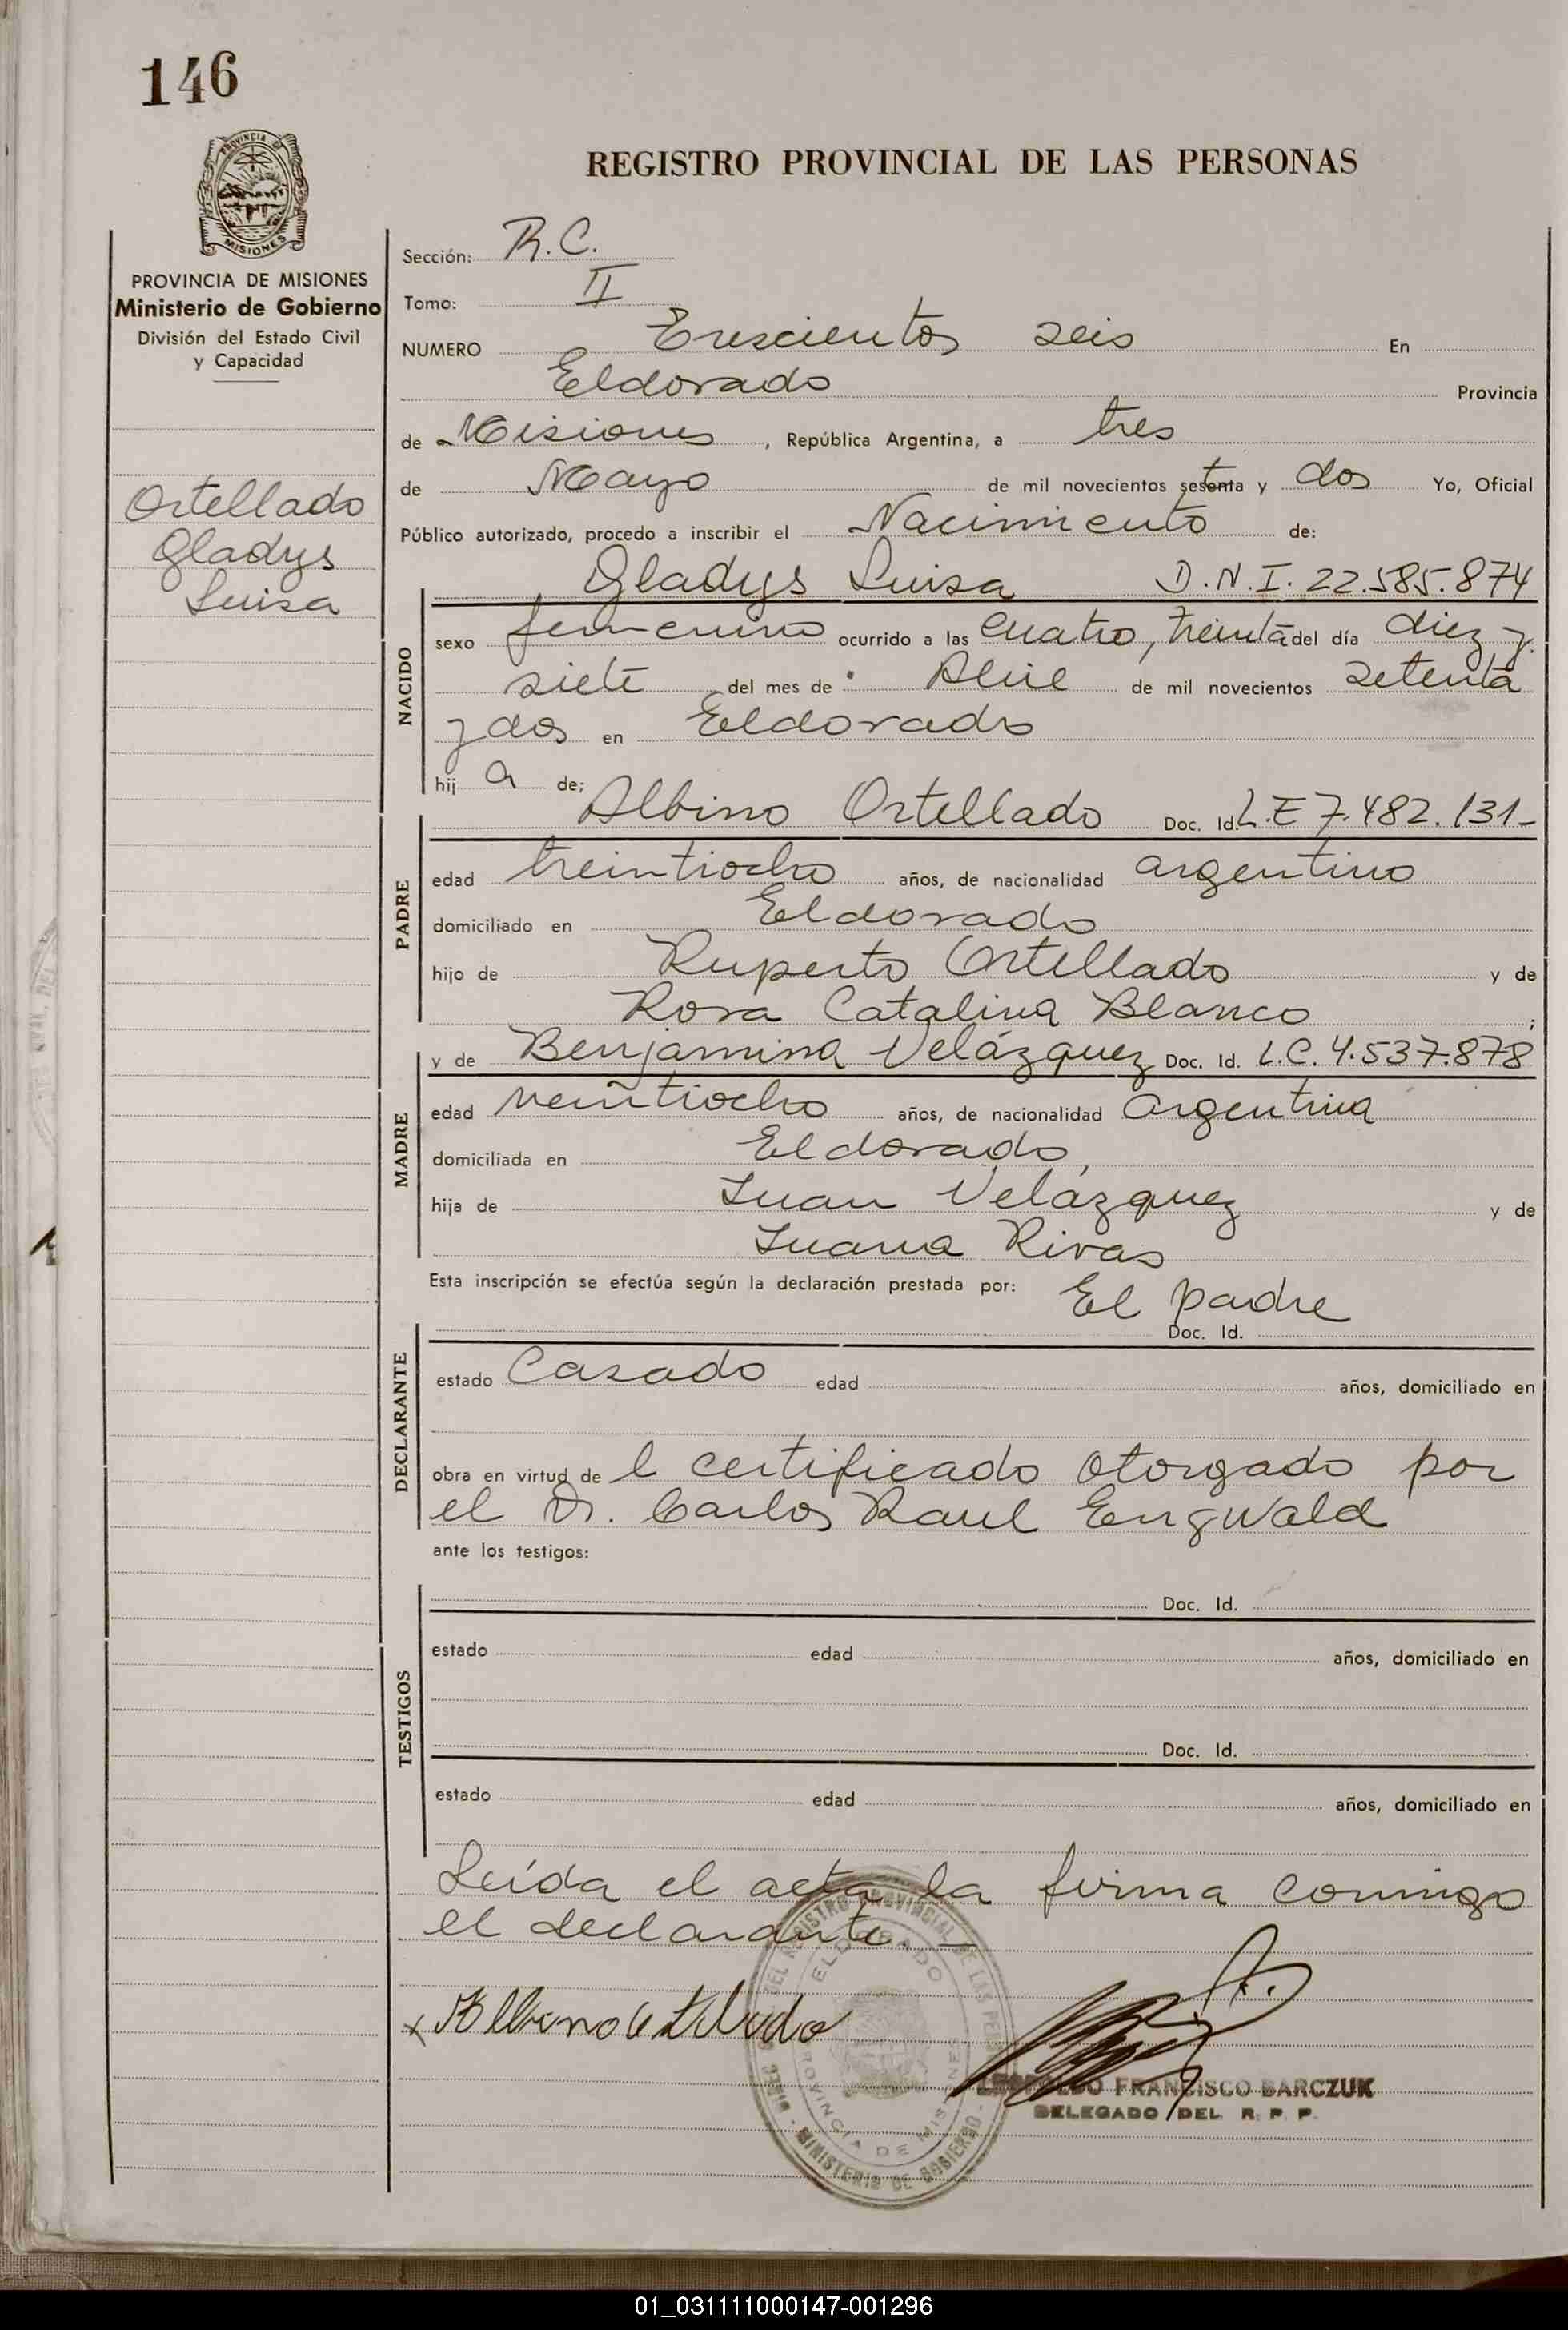 146
PROVINCIA DE
MISIONES
REGISTRO PROVINCIAL DE LAS PERSONAS
PROVINCIA DE MISIONES
Ministerio de Gobierno
División del Estado Civil
y Capacidad
Ortellado
Gladys
Luisa
Sección: R.C.
Tomo: II
NUMERO Trescientos seis En
Eldorado Provincia
de Misiones, República Argentina, a tres
de Mayo de mil novecientos setenta y dos Yo, Oficial
Público autorizado, procedo a inscribir el Nacimiento de:
NACIDO
Gladys Luisa D.N.I. 22.585.874
sexo femenino ocurrido a las cuatro, treinta del día diez y
siete del mes de Abril de mil novecientos setenta
y dos en Eldorado
hij a de;
PADRE
Albino Ortellado Doc. Id. L.E 7.482.131-
edad treintiocho años, de nacionalidad argentino
domiciliado en Eldorado
hijo de Ruperto Ortellado y de
Rosa Catalina Blanco ;
MADRE
y de Benjamina Velázquez Doc. Id. L.C. 4.537.878
edad veintiocho años, de nacionalidad argentina
domiciliada en Eldorado,
hija de Juan Velázquez y de
Juana Rivas
Esta inscripción se efectúa según la declaración prestada por: El padre
DECLARANTE
Doc. Id.
estado Casado edad años, domiciliado en
obra en virtud de l certificado otorgado por
el Dr. Carlos Raul Engwald
ante los testigos:
TESTIGOS
Doc. Id.
estado edad años, domiciliado en
Doc. Id.
estado edad años, domiciliado en
Leída el acta la firma conmigo
el declarante. —
x Albino Ortellado
ELDORADO
PROVINCIA DE MISIONES
MINISTERIO DE GOBIERNO
LEOPOLDO FRANCISCO BARCZUK
DELEGADO DEL R. P. P.
01_031111000147-001296